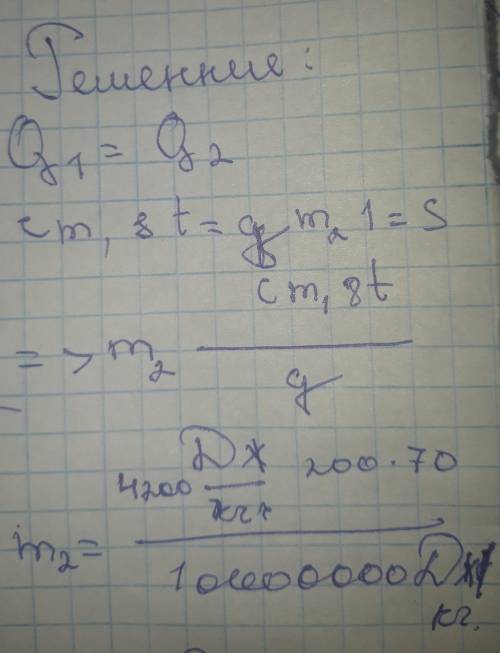 Решение:
Q1 = Q2
cm, 8 t = g m2 1 = S
cm, 8t
= > m2 ———
g
4200 Дж/кгк 200·70
m2 = ———
10000000 Дж
кг.